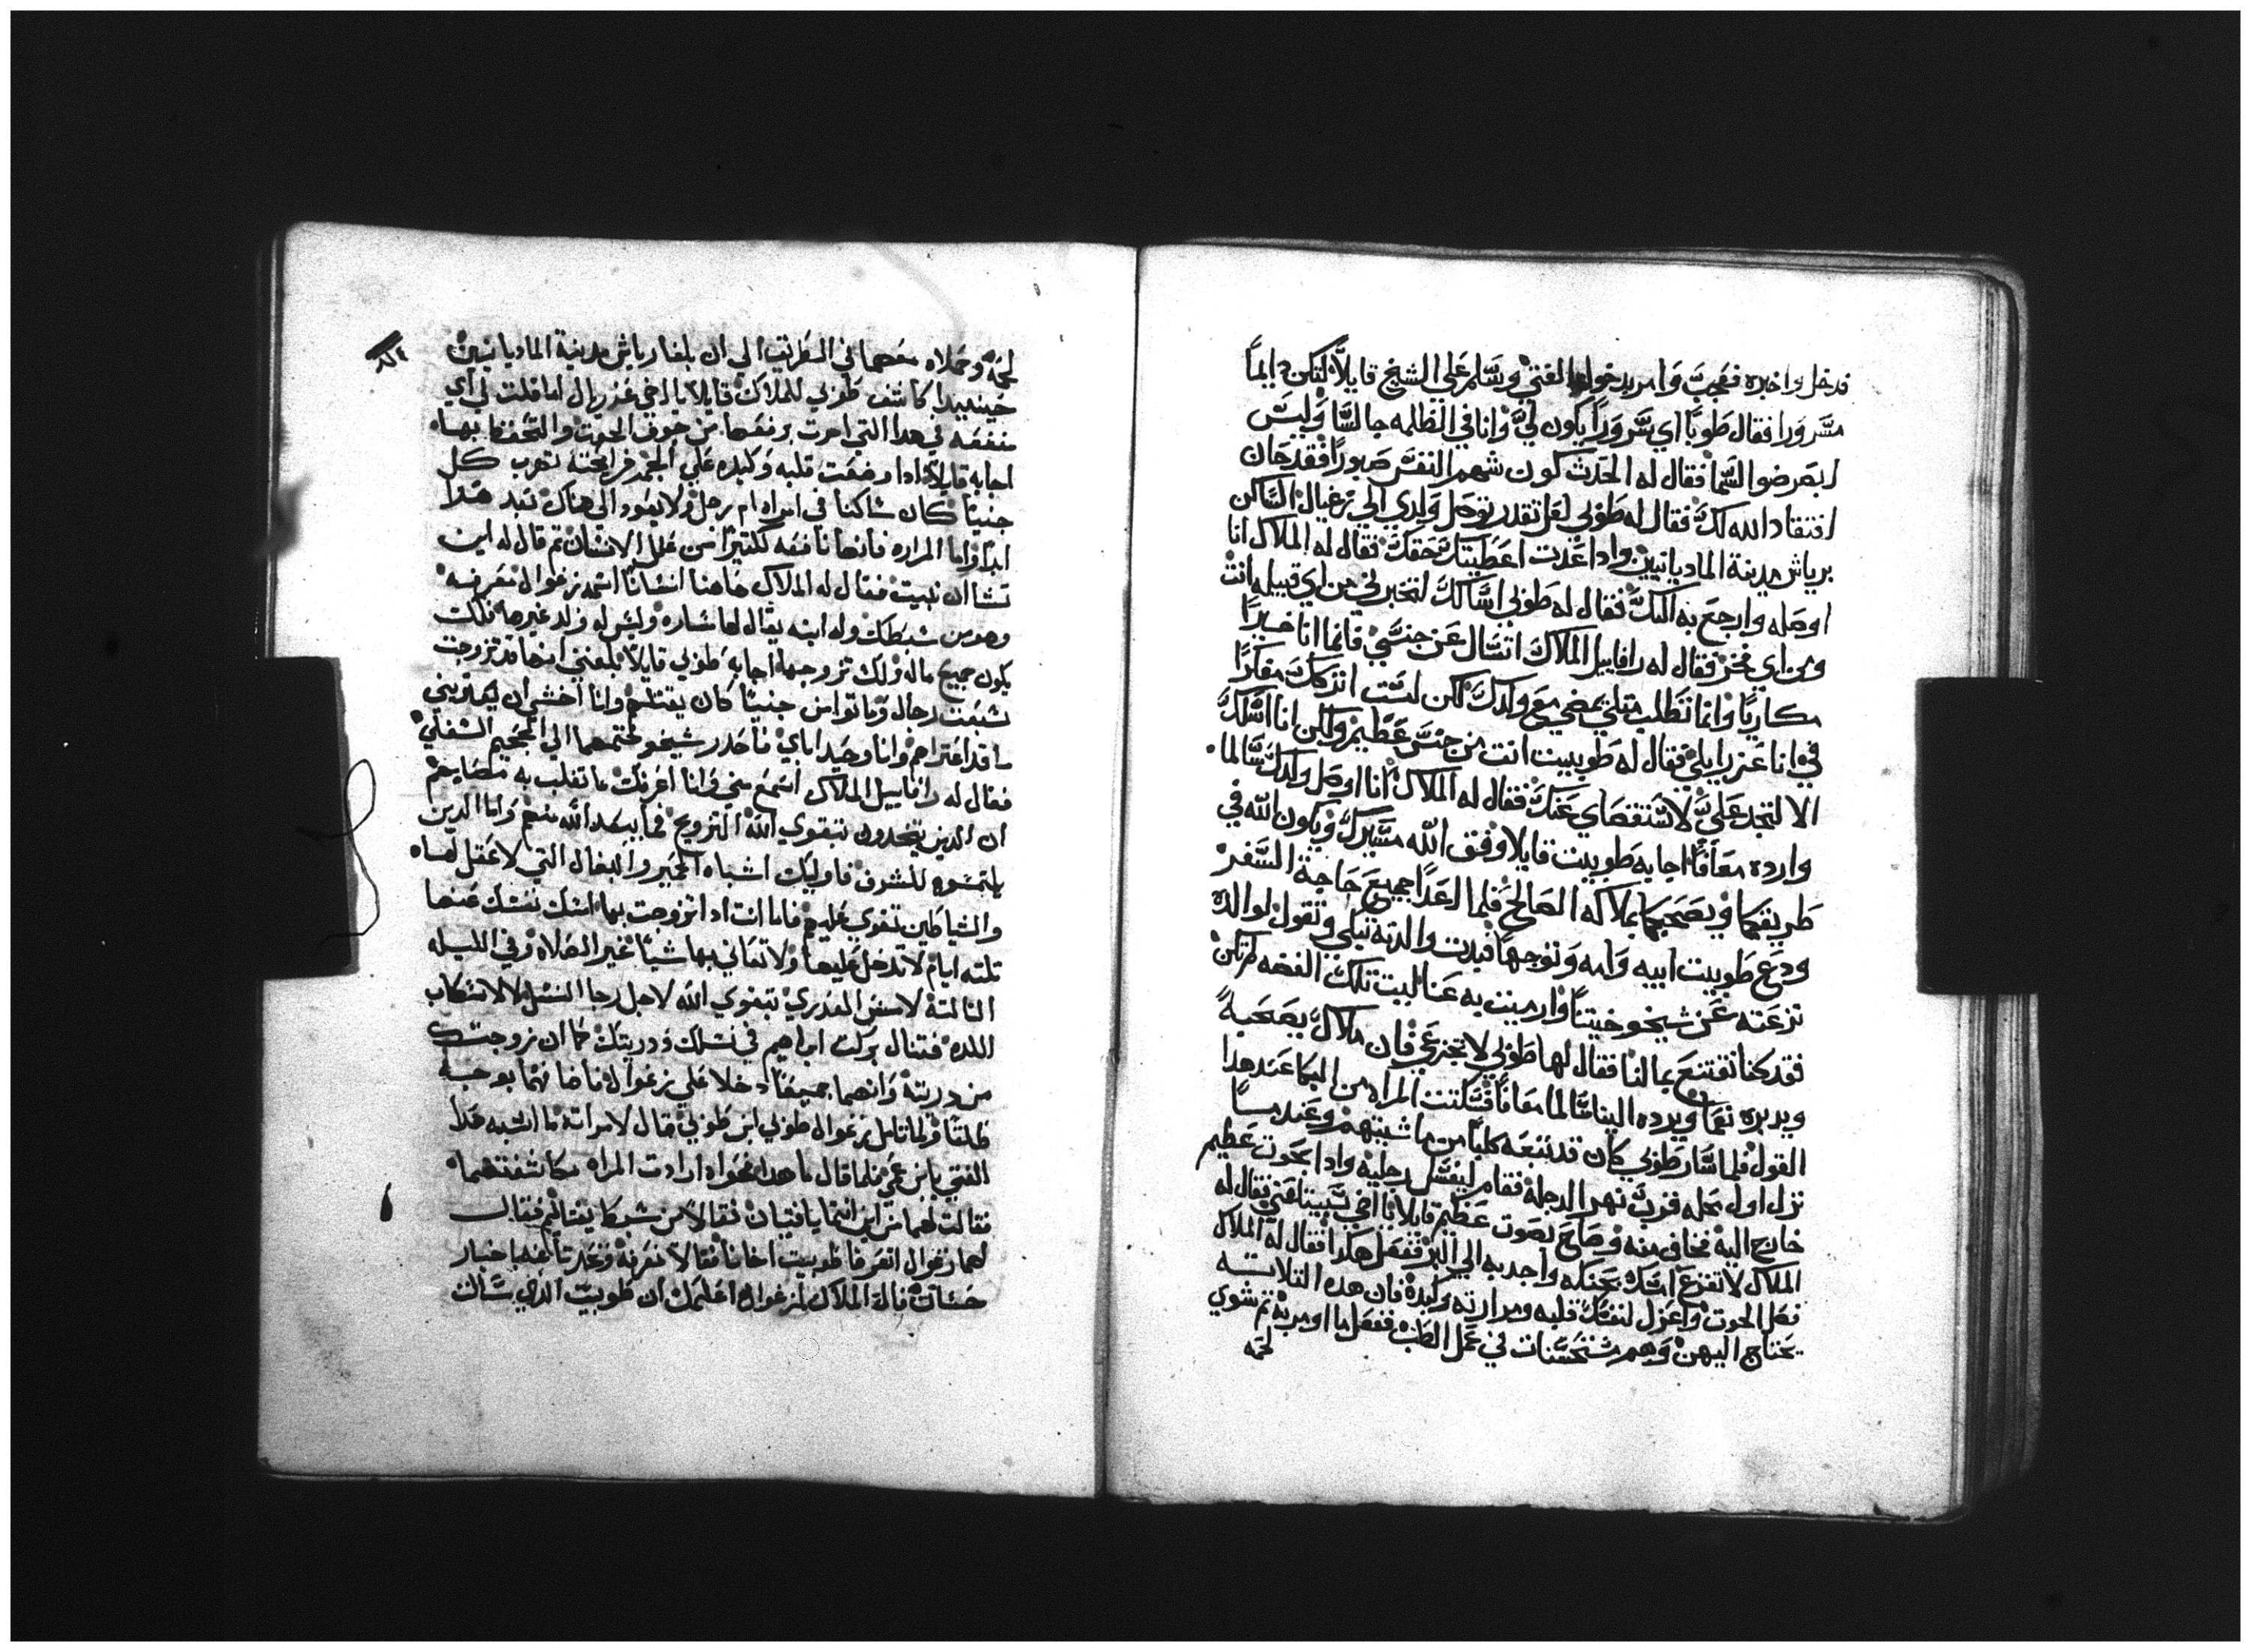 فدخل واخبره فعجب وامر بدخول الفتي وسلم علي الشيخ قايلاً لتكن دايماً
مسروراً فقال طوبيا اي سروراً يكون لي وانا في الظلمه جالساً وليس
ابصر ضوا السما فقال له الحدث كون شهم النفس صبوراً فقد حان
افتقاد الله لك فقال له طوبي لعل تقدر توصل ولدي الي زغبال الساكن
برياش مدينة الماديانيين واذا عدت اعطيتك حقك فقال له الملاك انا
اوصله وارجع به اليك فقال له طوبي اسالك لتخبرني من اي قبيله انت
ومن اي فخز فقال له رافاييل الملاك اتسال عن جنسي فانما انا خبيراً
مكارياً وانما تطلب مثلي يمضي مع ولدك لكن لست اتركك مفكراً
في انا عزرايلي فقال له طوبييت انت من جنس عظيم ولكن انا اسلك
الا تجد علي لاستقصاي عنك فقال له الملاك انا اوصل ولدك سالماً
وارده معافاً اجابه طوبييت قايلا وفق الله مسيرك ويكون الله في
طريقكما ويصحبكما بملاكه الصالح فلما اعدا جميع حاجة السفر
ودع طوبيت ابيه وامه وتوجها فبدت والدته تبكي وتقول لوالده
نزعته عن شيخوختينا وارميت به عنا ليت تلك الفضه لم تكن
فقد كنا نقتنع بما لنا فقال لها طوبي لا تجزعي فان ملاك يصحبه
ويدبره نعما ويرده الينا سالما معافاً فسكتت المراه من البكا عند هدا
القول فلما سار طوبي كان قد تبعه كلباً من ماشيتهم وعند مسا
نزل اول محله قرب نهر الدجله فقام ليغسل رجليه واذا بحوت عظيم
خارج اليه فخاف منه وصاح بصوت عظيم قايلا يا اخي سيبتلعني فقال له
الملاك لا تفزع امسك بحنكه واجدبه الي البر ففعل هكدا فقال له الملاك
فصل الحوت واعزل لنفسك قلبه ومرارته وكبده فان هده التلاته
يحتاج اليهن وهم مستحسنات في عمل الطب ففعل ما اومر به ثم شوي
لحمه
٨٤
لحمه وحملاه معهما في الطريق الي ان بلغا رياش مدينة الماديانيين
حينيد كاشف طوبي للملاك قايلا يا اخي عزريال اما قلت لي اي
منفعه في هدا التي امرت برفعها من جوف الحوت والتحفظ بها
اجابه قايلاً اذا وضعت قلبه وكبده علي الجمر فرايحته تهرب كل
جنياً كان ساكنا في امراه ام رجل ولا يعود الي هناك بعد هدا
ابداً واما المراره فانها نافعه لكثيراً من علل الانسان ثم قال له اين
تشا ان نبيت فقال له الملاك هاهنا انساناً اسمه زغوال تعرفه
وهو من سبطك وله ابنه يقال لها ساره وليس له ولد غيرها فلك
يكون جميع ماله ولك تزوجها اجابه طوبي قايلاً بلغني انها قد تزوجت
سبعت رجال وماتوا من جنياً كان يقتلهم وانا اخشي ان يعتريني
ما قد اعتراهم وانا وحيد اباي فاحدر شيخوختهما الي الجحيم السفلي
فقال له رافاييل الملاك اسمع مني وانا اعرفك ما تغلب به مضايهم
ان الدين يتخدون بتقوي الله التزويج فما يبعد الله منهم واما الدين
يلتمسوه للشرف فاوليك اشباه الحمير والبغال التي لا عقل لها
والشياطين تقوي عليهم فاما انت ادا تزوجت بها امسك نفسك عنها
تلته ايام لا تدخل عليها ولا تعاني بها شيئاً غير الصلاه وفي الليله
التالتة لامس العدري بتقوي الله لاجل رجا النسل لا لارتكاب
اللده فتنال بركت ابراهيم في نسلك ودريتك كما ان زوجتك
من دريته وانهما جميعاً دخلا علي زغوال فاضافهما بوجه
طلقا ولما تامل زغوال طوبي ابن طوبي قال لامراته ما اشبه هدا
الفتي بابن عمي فلما قال ما هدا نحواه ارادت المراه مكاشفتهما
فقالت لهما من اين انتما يا فتيان فقالا من سبط يفتاليم فقال
لهما زغوال اتعرفا طوبيت اخانا فقالا نعرفه وتحدتا عنه باخبار
حسان قال الملاك لزغوال اعلمك ان طوبيت الذي سالت